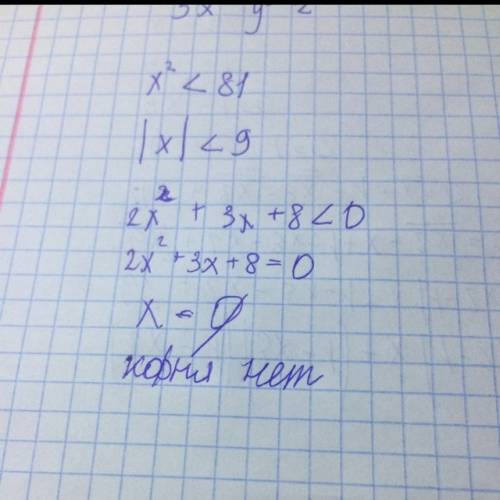 x² < 81
|x| < 9
2x² + 3x + 8 < 0
2x² + 3x + 8 = 0
x = Ø
корня нет